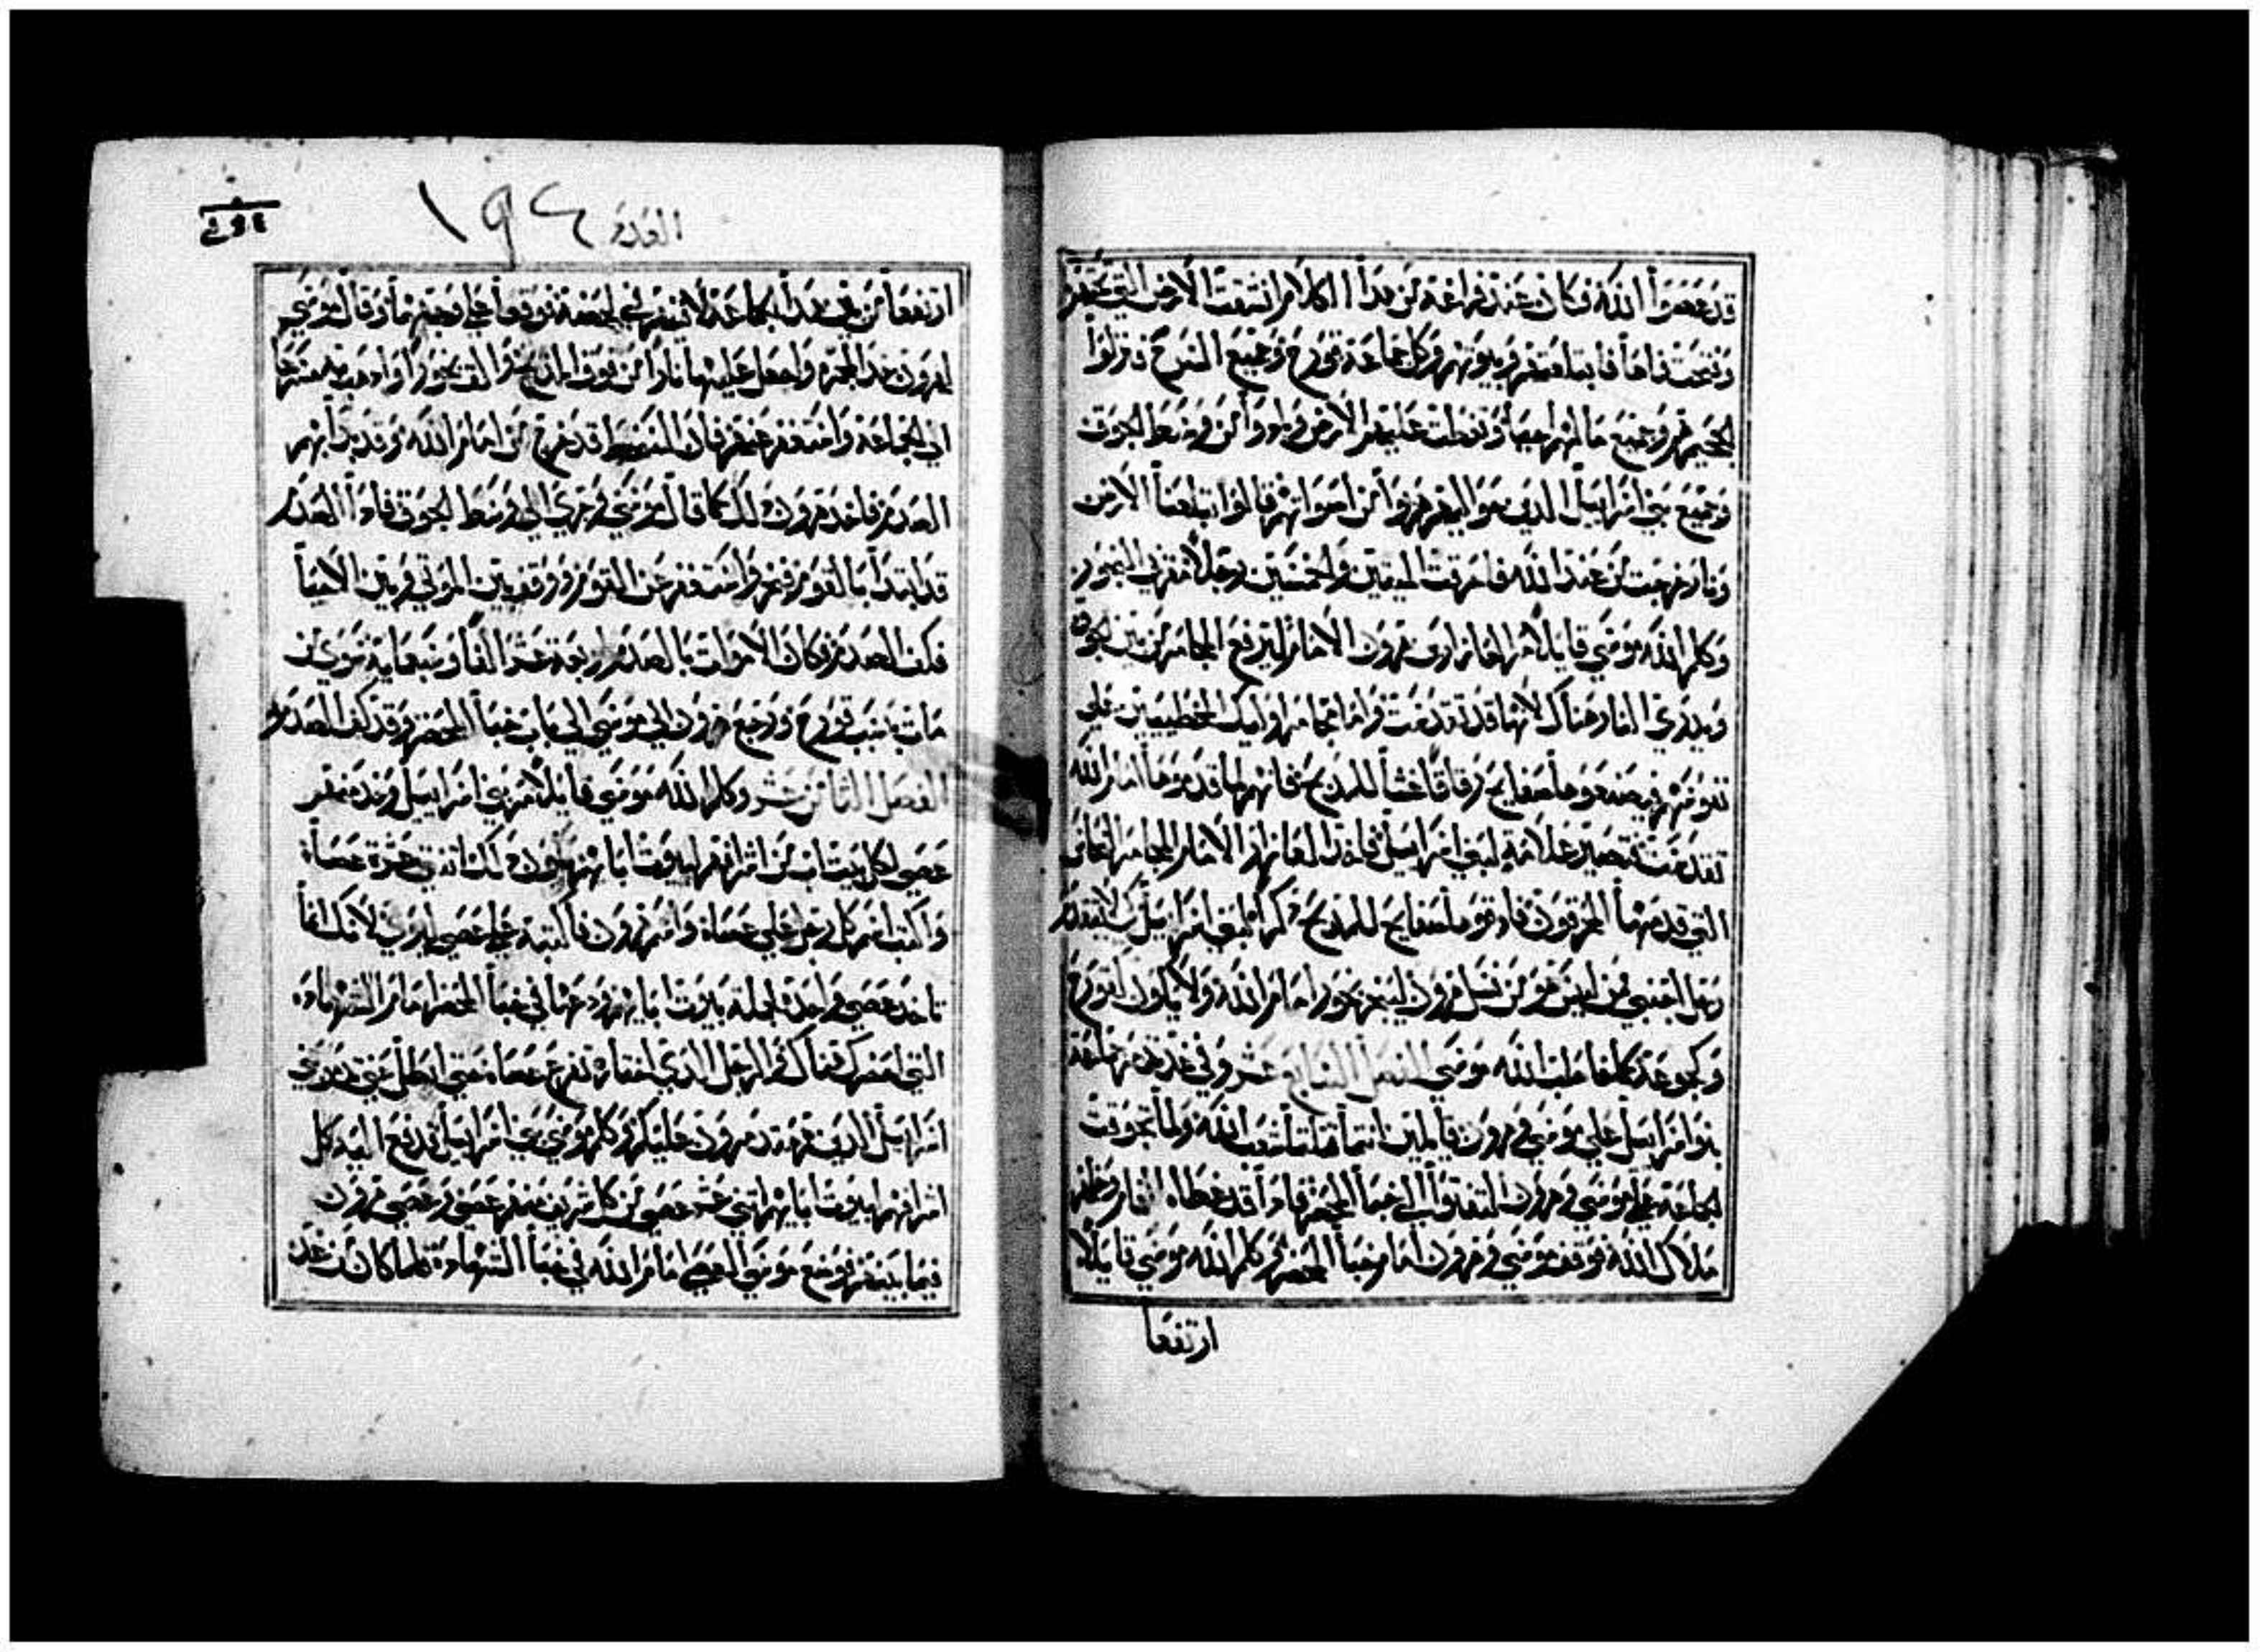 قد عصوا الله فكان عند فراغه من هدا الكلام انشقت الارض التي تحتهم
وفتحت فاها فابتلعتهم وبيوتهم وكل جماعة قورح وجميع السرح فنزلوا
الجحيم هم وجميع مالهم احيا وتغطت عليهم الارض وبادوا من وسط الجوق
وجميع بني اسراييل الدين حواليهم هربوا من اصواتهم قالوا تبتلعنا الارض
ونار خرجت من عند الله فاحرقت الميتين والخمسين رجلا مقربي البخور
وكلم الله موسي قايلا مر العازار ابن هرون الامام ليرفع المجامر من بين
ويدري النار هناك لانها قد تقدست واما مجامر اوليك الخطييين علي
نفوسهم فيصنعوها صفايح رقاقا غشا للمدبح فانهم لما قدموها امام الله
تقدست تصير علامة لبني اسراييل فاخد العازار الامام المجامر النحاس
التي قدمها المحرقون فادقوها صفايح للمدبح دكرا لبني اسراييل كيلا يتقدم
رجل اجنبي من ليس هو من نسل هرون ليبخر بخور امام الله ولا يكون كقورح
وكجوعه كما خاطب الله موسي الفصل السابع عشر وفي غد تدمر جماعة
بنوا اسراييل علي موسي وهرون قايلين انتما قتلتما شعب الله ولما تجوقت
الجماعة علي موسي وهرون التفتوا الي خبا المحضر فادا قد غطاه الغمام وظهر
ملاك الله فوقف موسي وهرون امام خبا المحضر وكلم الله موسي قايلا
ارتفعا
العدد ١٩٤
ارتفعا من بين هدا الجماعة لافنيهم في لحضة فوقعا علي وجههما وقال موسي
لهرون خد المجمرة واجعل عليها نارا من فوق المدبح والق بخورا وادهب به مسرعا
الي الجماعة واستغفر عنهم فان السخط قد خرج من امام الله وقد بدا بهم
الصدم فاخد هرون دلك كما قال موسي وجري الي وسط الجوق فادا الصدم
قد ابتدا بالقوم فبخر واستغفر عن القوم ووقف بين الموتي وبين الاحيا
فكف الصدم فكان الاموات بالصدم اربعة عشر الفا وسبعماية سوي من
مات بسبب قورح ورجع هرون الي موسي الي باب خبا المحضر وقد كف الصدم
الفصل الثامن عشر وكلم الله موسي قايلا مر بني اسراييل وخد منهم
عصي لكل بيت اب من اشرافهم لبيوت ابايهم يكون دلك اتني عشرة عصاه
واكتب اسم كل رجل علي عصاه واسم هرون فاكتبه علي عصي ليوي لانك انما
تاخد عصي واحدة لجملة بيوت ابايهم ودعها في خبا المحضر امام الشهادة
التي احضرك هناك فالرجل الدي اختاره تفرع عصاه حتي ابطل عني تدمر بني
اسراييل الدين هم متدمرون عليكم فكلم موسي بني اسراييل فدفع اليه كل
اشرافهم لبيوت ابايهم اتني عشر عصي من كل شريف منهم عصي وعصي هرون
فيما بينهم فوضع موسي العصي امام الله في خبا الشهادة فلما كان من غد